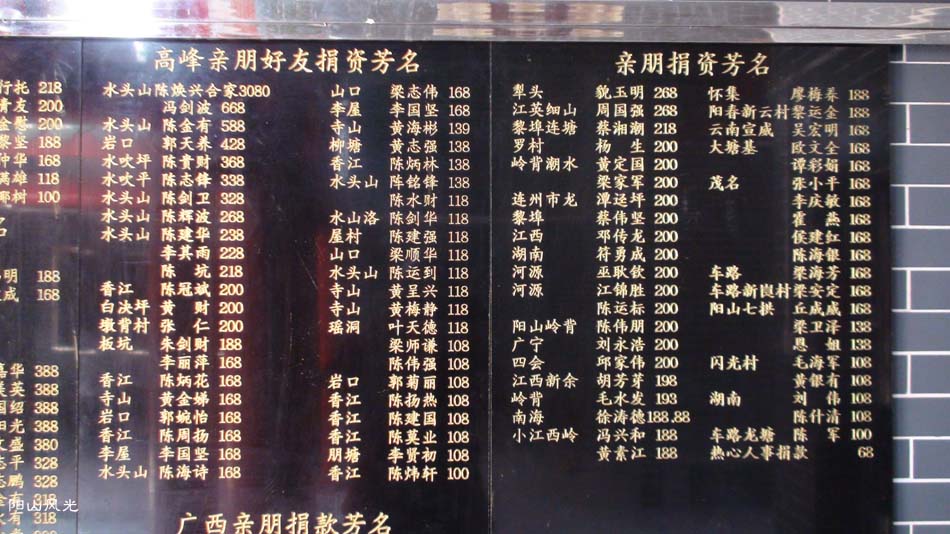 行托 218
青友 200
金慰 200
黎坚 188
仲华 168
满雄 118
椰树 100
明 188
成 168
嘉华 388
英 388
国绍 388
阳光 388
文盛 380
志平 328
志鹏 328
金有 318
水有 318
高峰亲朋好友捐资芳名
水头山 陈焕兴合家3080
冯剑波 668
水头山 陈金有 588
岩口 郭天养 428
水吹坪 陈贵财 368
水吹平 陈志锋 338
水头山 陈剑卫 328
水头山 陈辉波 268
水头山 陈建华 238
李其雨 228
陈 坑 218
香江 陈冠斌 200
白决坪 黄 财 200
墩背村 张 仁 200
板坑 朱剑财 188
李丽萍 168
香江 陈炳花 168
寺山 黄金娣 168
岩口 郭婉怡 168
香江 陈周扬 168
李屋 李国坚 168
水头山 陈海诗 168
山口 梁志伟 168
李屋 李国坚 168
寺山 黄海彬 139
柳塘 黄志强 138
香江 陈炳林 138
水头山 阵铭锋 138
陈水财 118
水山洛 陈剑华 118
屋村 陈建强 118
山口 梁顺华 118
水头山 陈运到 118
寺山 黄呈兴 118
寺山 黄梅静 118
瑶洞 叶天德 118
梁师谦 108
陈伟强 108
岩口 郭菊丽 108
香江 陈扬热 108
香江 陈建国 108
香江 陈莫业 108
朋塘 李贤初 108
香江 陈炜轩 100
广西亲朋捐款芳名
亲朋捐资芳名
犁头 貌玉明 268
江英细山 周国强 268
黎埠连塘 蔡湘潮 218
罗村 杨 生 200
岭背潮水 黄定国 200
梁家军 200
连州市龙 潭运坪 200
黎埠 蔡伟坚 200
江西 邓传龙 200
湖南 符勇成 200
河源 巫耿钦 200
河源 江锦胜 200
陈运标 200
阳山岭背 陈伟朋 200
广宁 刘永浩 200
四会 邱家伟 200
江西新余 胡芳芽 198
岭背 毛水发 193
南海 徐涛德188.88
小江西岭 冯兴和 188
黄素江 188
怀集 廖梅养 188
阳春新云村 黎运金 188
云南宣威 吴宏明 168
大塘基 欧文全 168
谭彩娟 168
茂名 张小平 168
李庆敏 168
霍 燕 168
侯建红 168
陈海银 168
车路 梁海芳 168
车路新良村 梁安定 168
阳山七拱 丘威威 168
梁卫泽 138
恩 姐 138
闪光村 毛海军 108
黄银有 108
湖南 刘 伟 108
陈什清 108
车路龙塘 陈 军 100
热心人事捐款 68
阳山风光